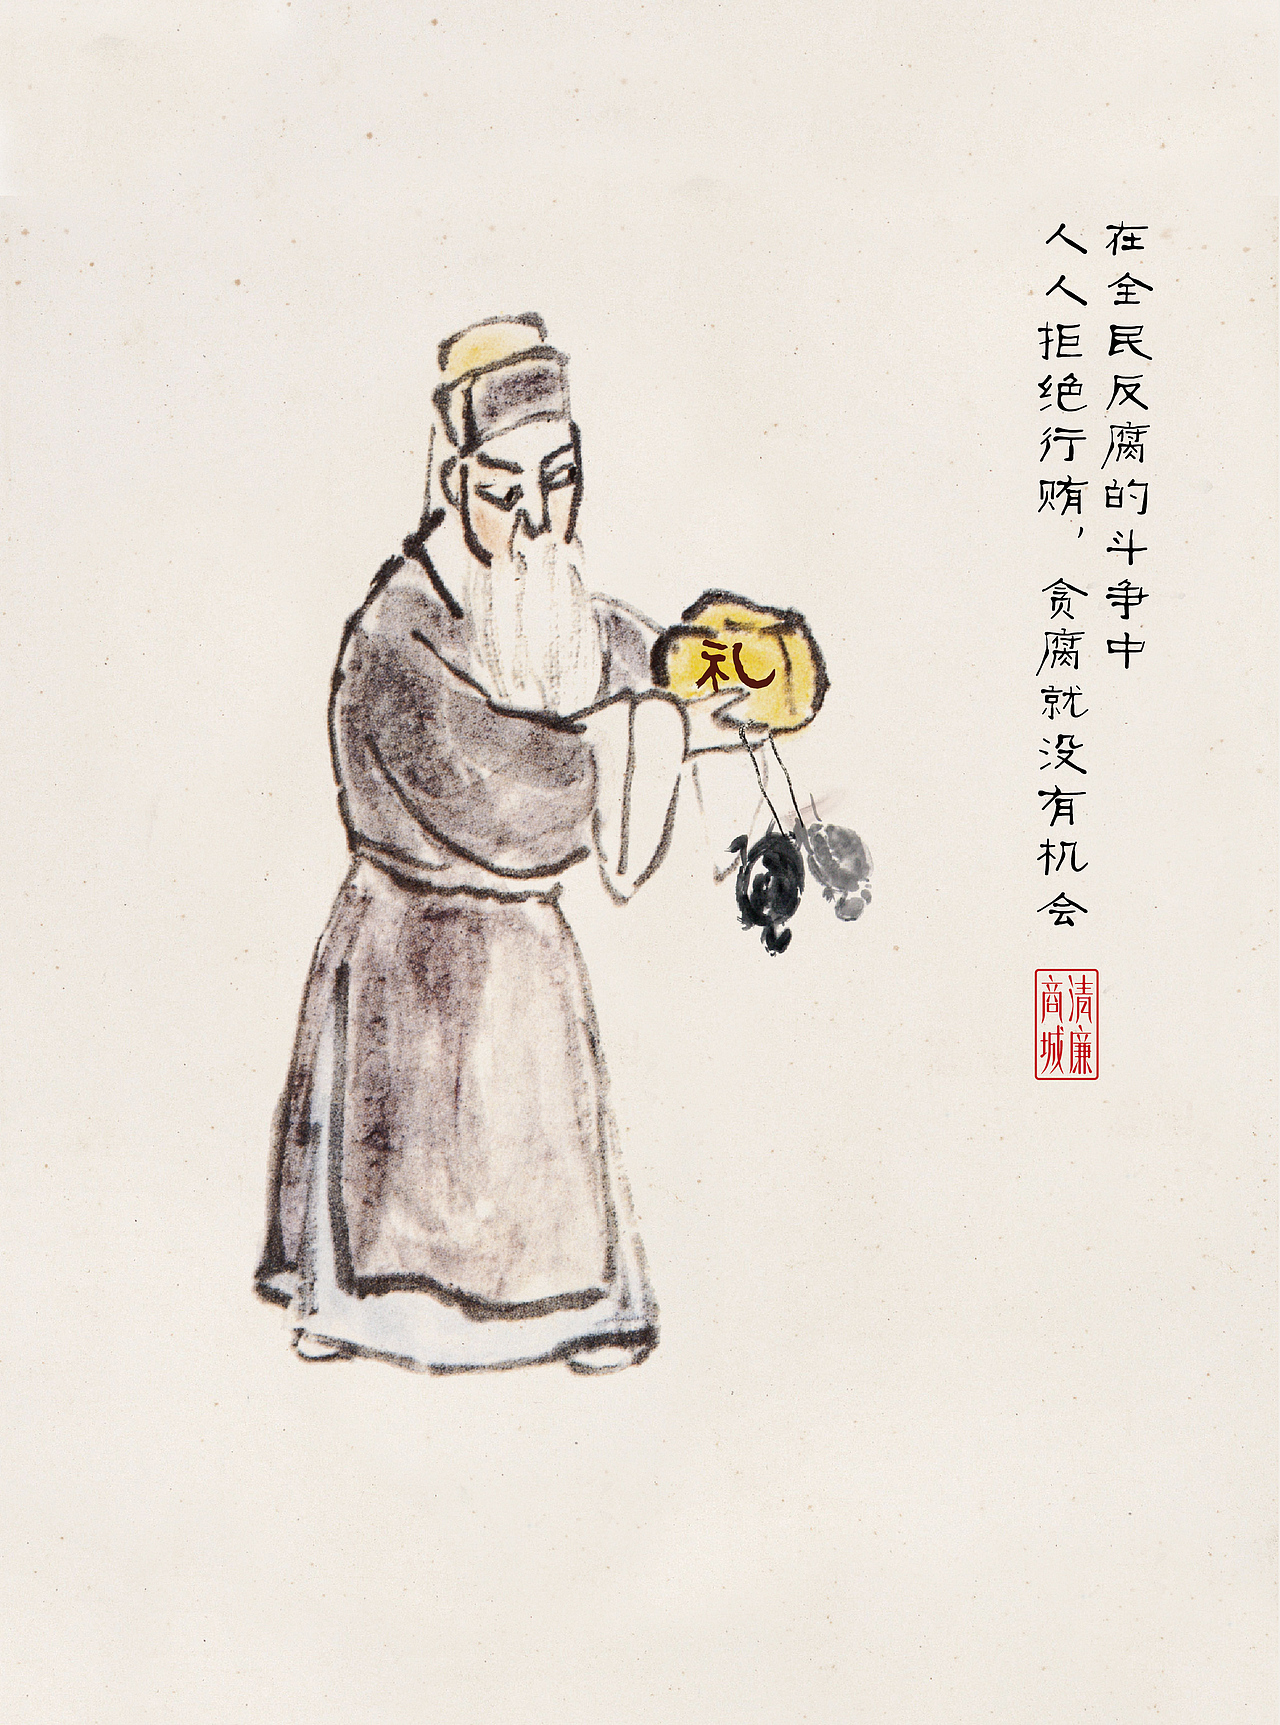 在全民反腐的斗争中
人人拒绝行贿，贪腐就没有机会
清廉
商城
礼